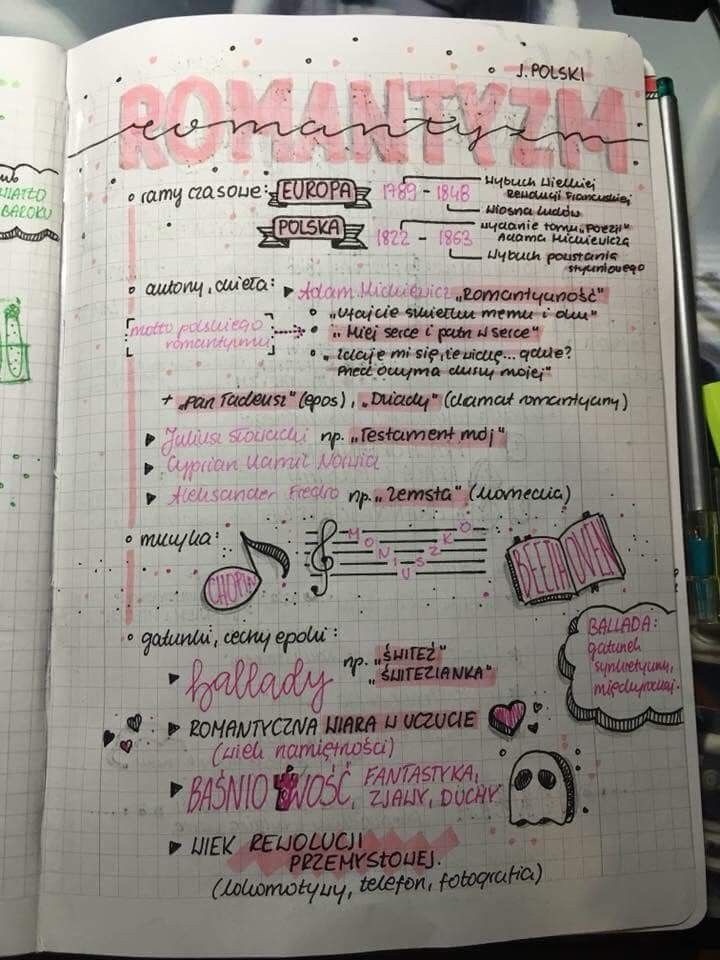 J. POLSKI
ROMANTYZM
romantyzm
ramy czasowe: EUROPA 1789 - 1848 Wybuch Wielkiej Rewolucji Francuskiej
Wiosna Ludów
POLSKA 1822 - 1863 wydanie tomu „Poezji" Adama Mickiewicza
Wybuch powstania styczniowego
autorzy, dzieła: Adam Mickiewicz „Romantyczność"
motto polskiego romantyzmu
„Miej serce i patrz w serce"
„Zdaje mi się, że widzę... gdzie?
Przed oczyma duszy mojej"
+ „Pan Tadeusz" (epos), „Dziady" (dramat romantyczny)
Juliusz Słowacki np. „Testament mój"
Cyprian Kamil Norwid
Aleksander Fredro np. „Zemsta" (komedia)
muzyka: CHOPIN MONIUSZKO BEETHOVEN
gatunki, cechy epoki:
ballady np. „ŚWITEŹ"
„ŚWITEZIANKA"
BALLADA:
gatunek
synkretyczny,
międzyrodzaj.
ROMANTYCZNA WIARA W UCZUCIE
(wiek namiętności)
BAŚNIOWOŚĆ, FANTASTYKA,
ZJAWY, DUCHY
WIEK REWOLUCJI
PRZEMYSŁOWEJ.
(lokomotywy, telefon, fotografia)